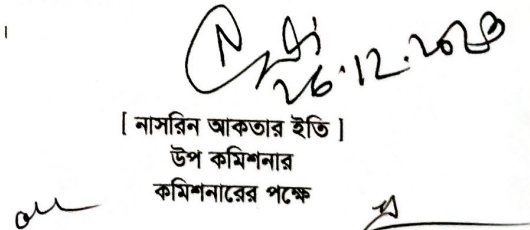 26.12.2023
[ নাসরিন আকতার ইতি ]
উপ কমিশনার
কমিশনারের পক্ষে